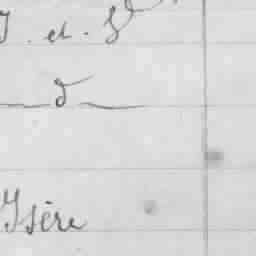 J. et. Gd
— d —
Isère